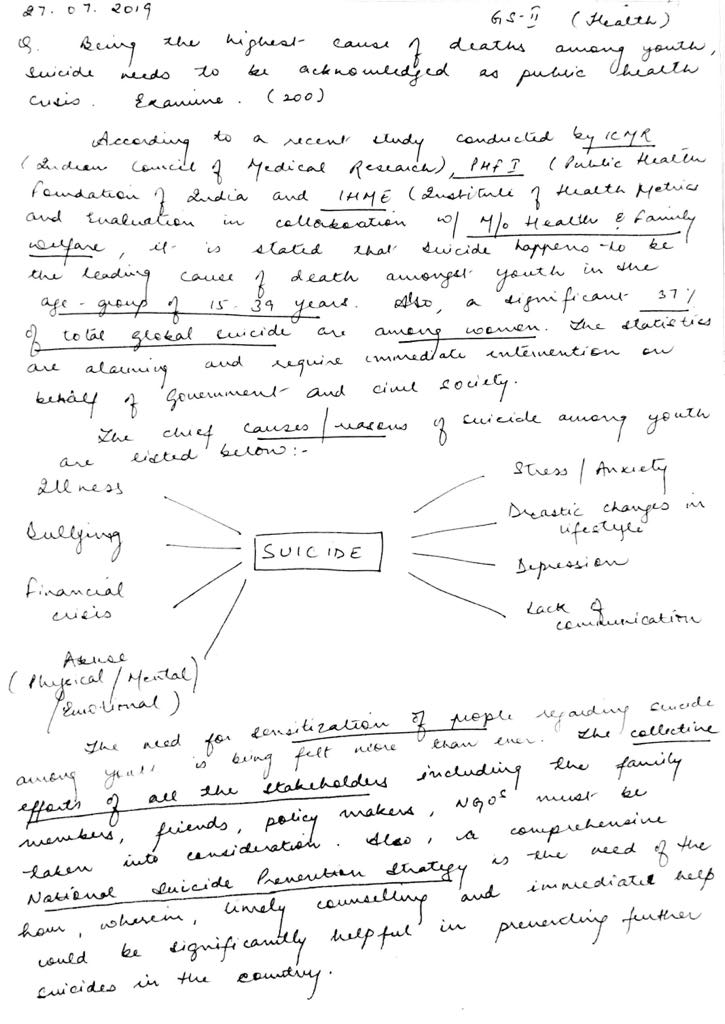 27.07.2019
GS-II (Health)
Q. Being the highest cause of deaths among youth,
suicide needs to be acknowledged as public health
crisis. Examine. (200)
According to a recent study conducted by ICMR
(Indian Council of Medical Research), PHFI (Public Health
Foundation of India and IHME (Institute of Health Metrics
and Evaluation in collaboration w/ M/o Health & Family
welfare, it is stated that suicide happens to be
the leading cause of death amongst youth in the
age-group of 15-39 years. Also, a significant 37%
of total global suicide are among women. The statistics
are alarming and require immediate intervention on
behalf of Government and civil society.
The chief causes/reasons of suicide among youth
are listed below:-
Illness
Bullying
Financial
crisis
Abuse
(Physical/Mental)
/Emotional)
SUICIDE
Stress/Anxiety
Drastic changes in
lifestyle
Depression
Lack of
communication
The need for sensitization of people regarding suicide
among youth is being felt more than ever. The collective
efforts of all the stakeholders including the family
members, friends, policy makers, NGOs must be
taken into consideration. Also, a comprehensive
National Suicide Prevention Strategy is the need of the
hour, wherein, timely counselling and immediate help
would be significantly helpful in preventing further
suicides in the country.